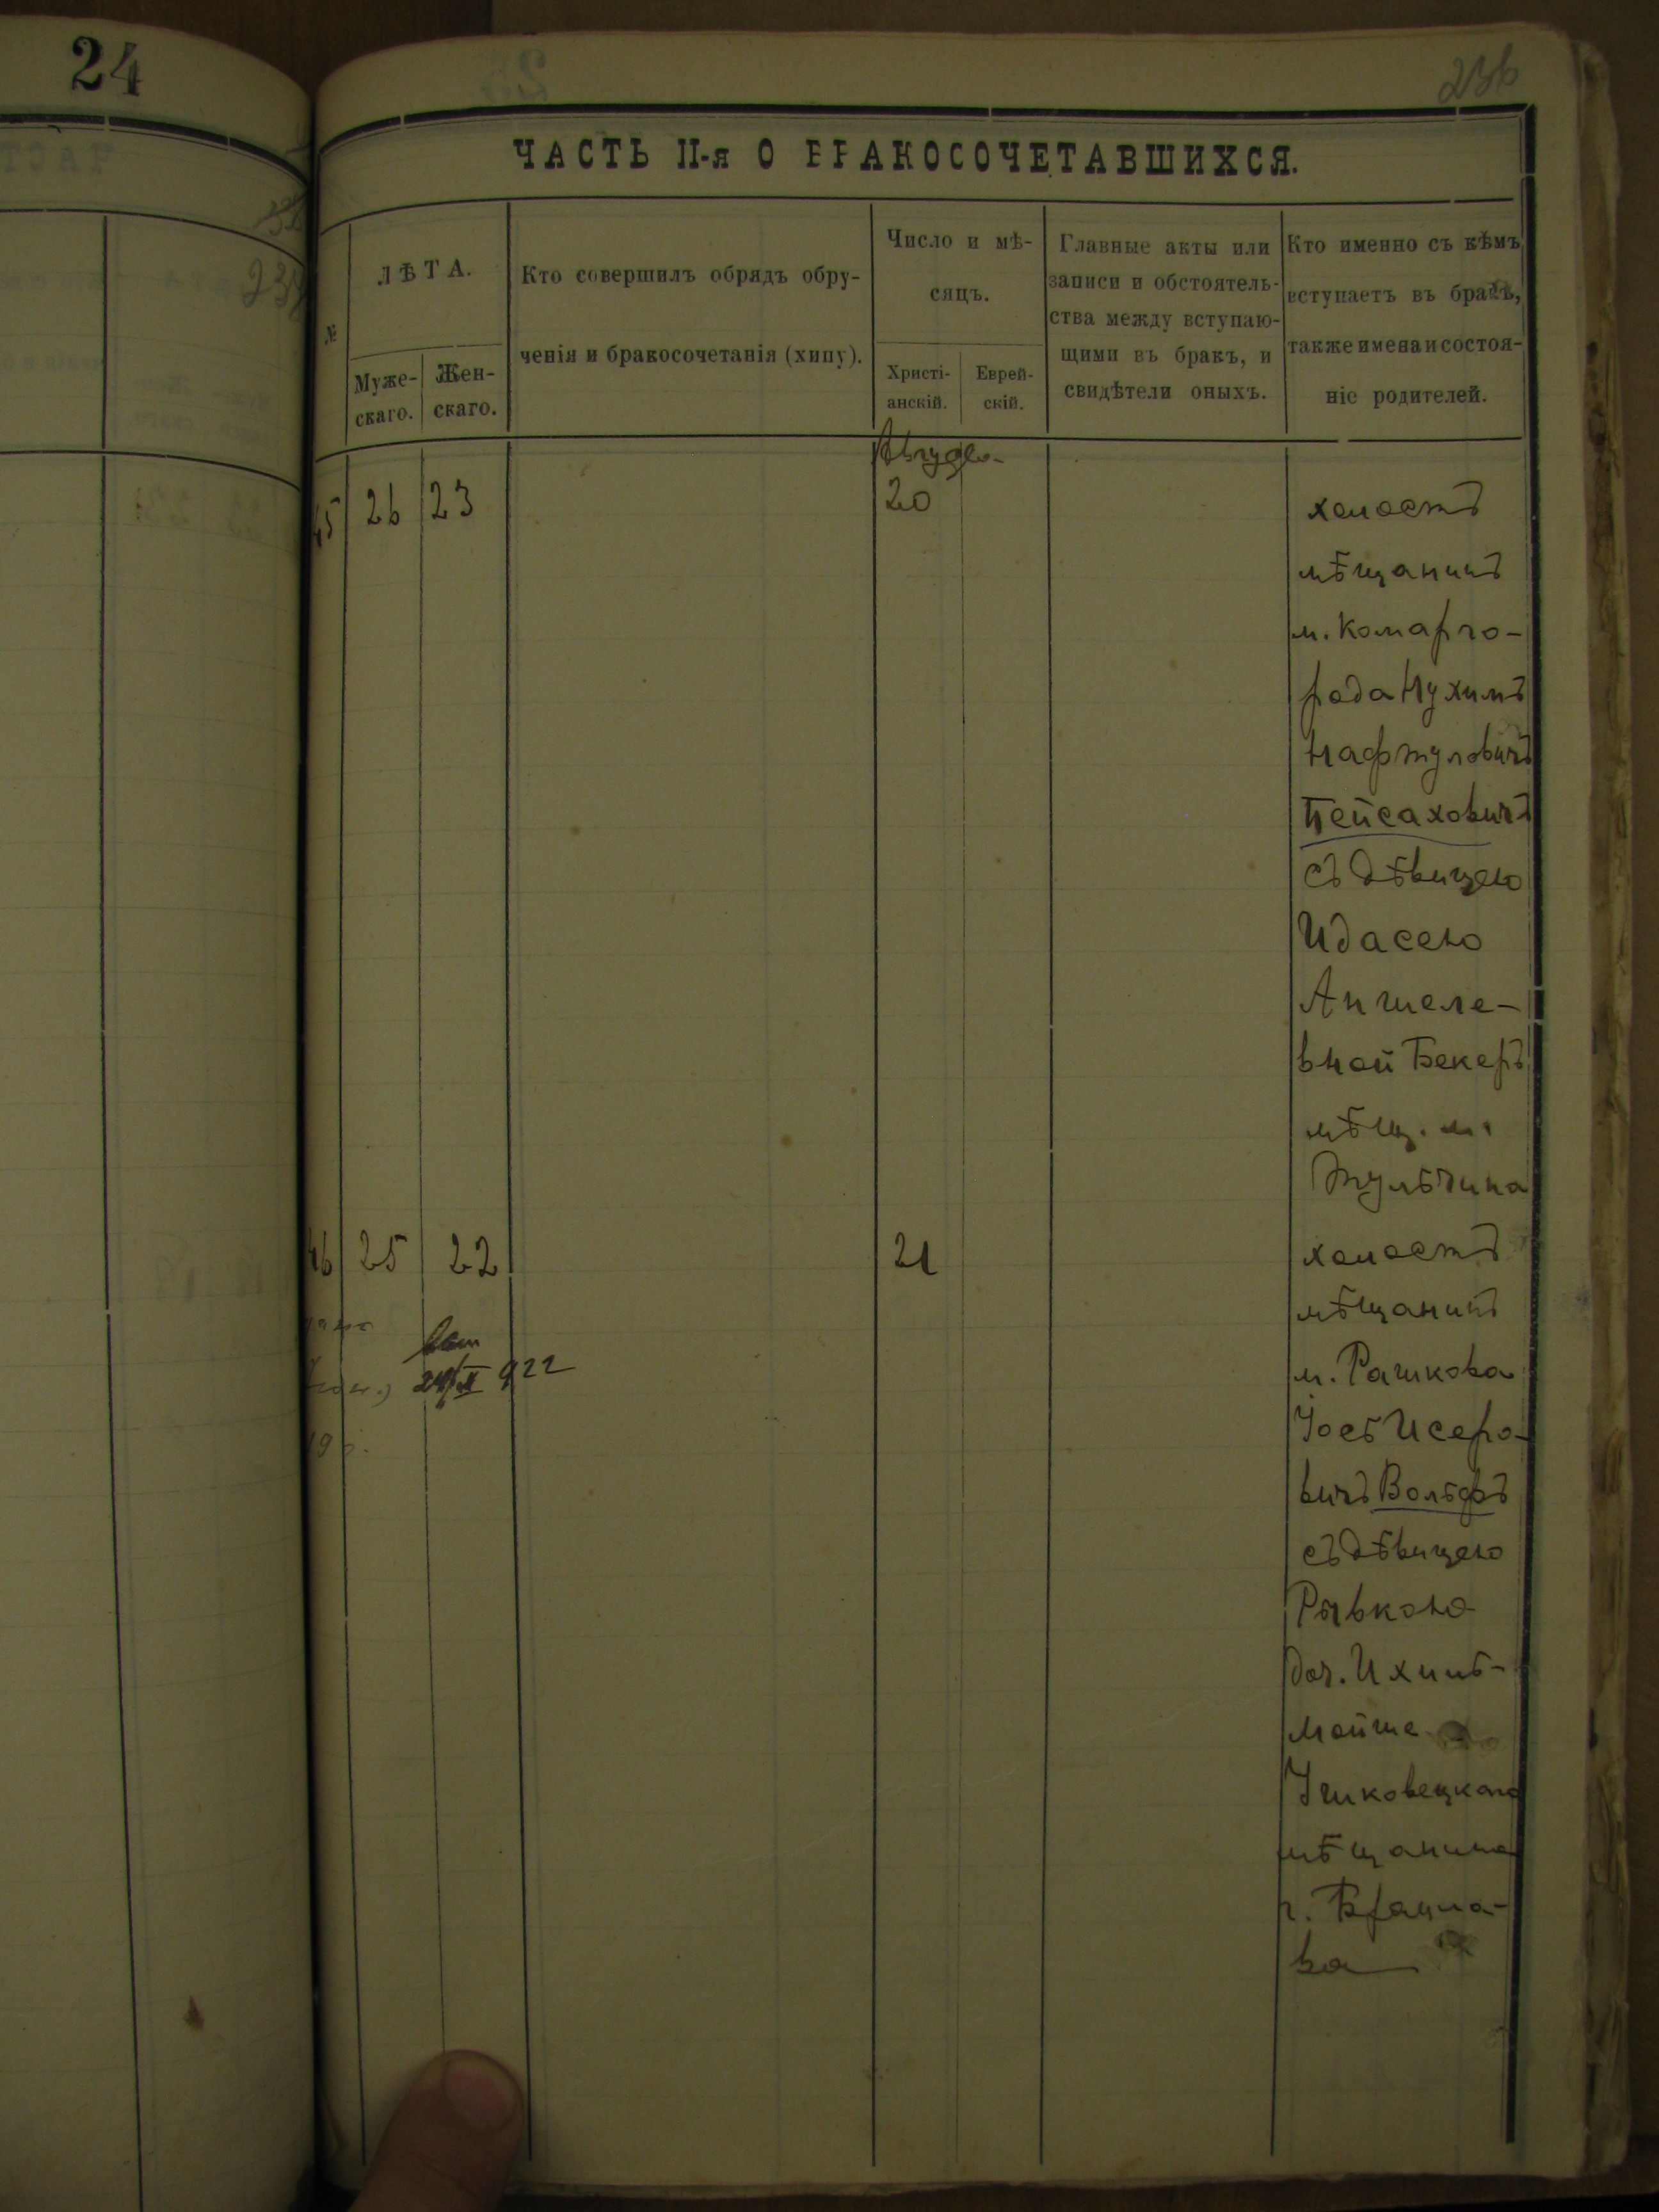 24
236
ЧАСТЬ II-я О БРАКОСОЧЕТАВШИХСЯ.
№
ЛѢТА.
Муже-
скаго.
Жен-
скаго.
Кто совершилъ обрядъ обру-
ченія и бракосочетанія (хипу).
Число и мѣ-
сяцъ.
Христі-
анскій.
Еврей-
скій.
Главные акты или
записи и обстоятель-
ства между вступаю-
щими въ бракъ, и
свидѣтели оныхъ.
Кто именно съ кѣмъ
вступаетъ въ бракъ,
также имена и состоя-
ніе родителей.
45 26 23
20
холостъ
мѣщанинъ
м. Комарго-
рода Нухимъ
Нафтуловичъ
Пейсаховичъ
съ дѣвицею
Идасею
Аншеле-
вной Бекеръ
мѣщ. м.
Тульчина
46 25 22
21
922
холостъ
мѣщанинъ
м. Рашкова
Іось Исеро-
вичъ Вольфъ
съ дѣвицею
Рывкою
доч. Ихиль-
Мойше
Ичиковецкаго
мѣщанина
г. Брацла-
ва